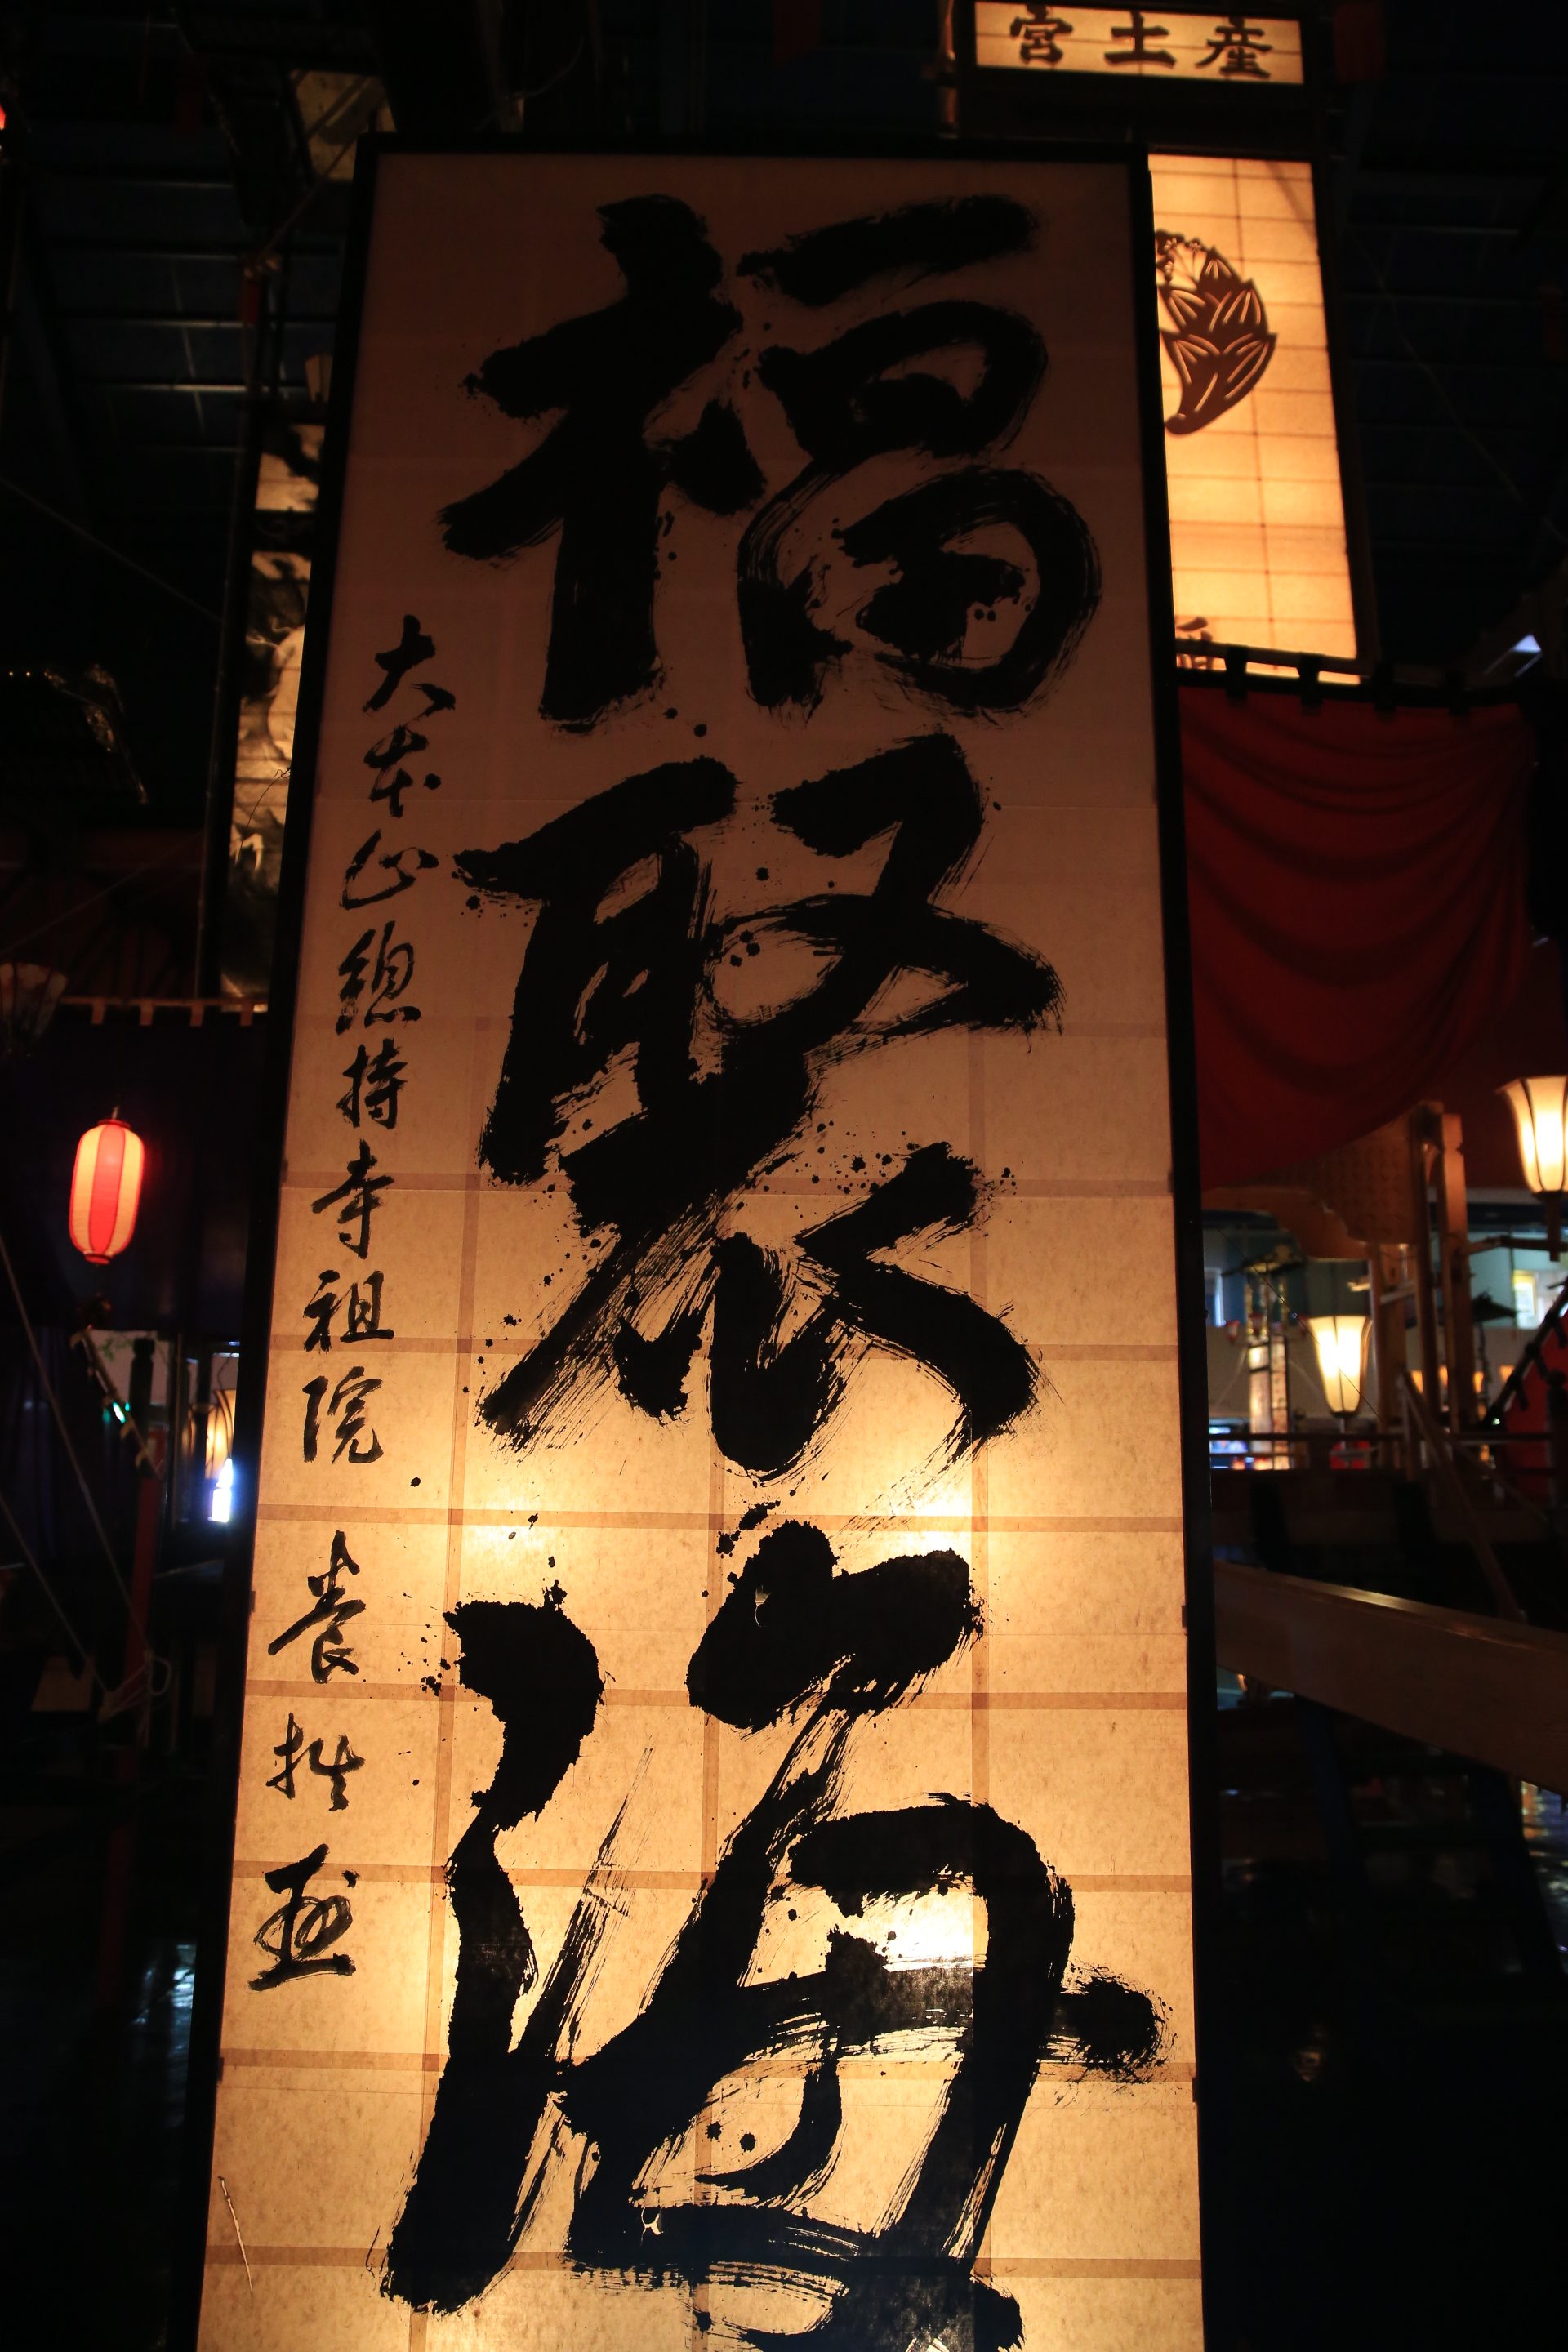 産土宮
福聚海
大本山總持寺祖院 養拙